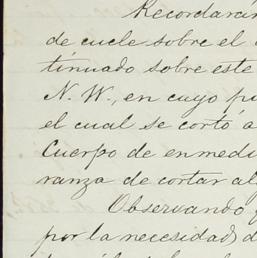 Recordarán
de cuele sobre el
tinuado sobre este
N. W., en cuyo
el cual se cortó a
Cuerpo de enmedi
ranza de cortar al
Observando
por la necesidad d